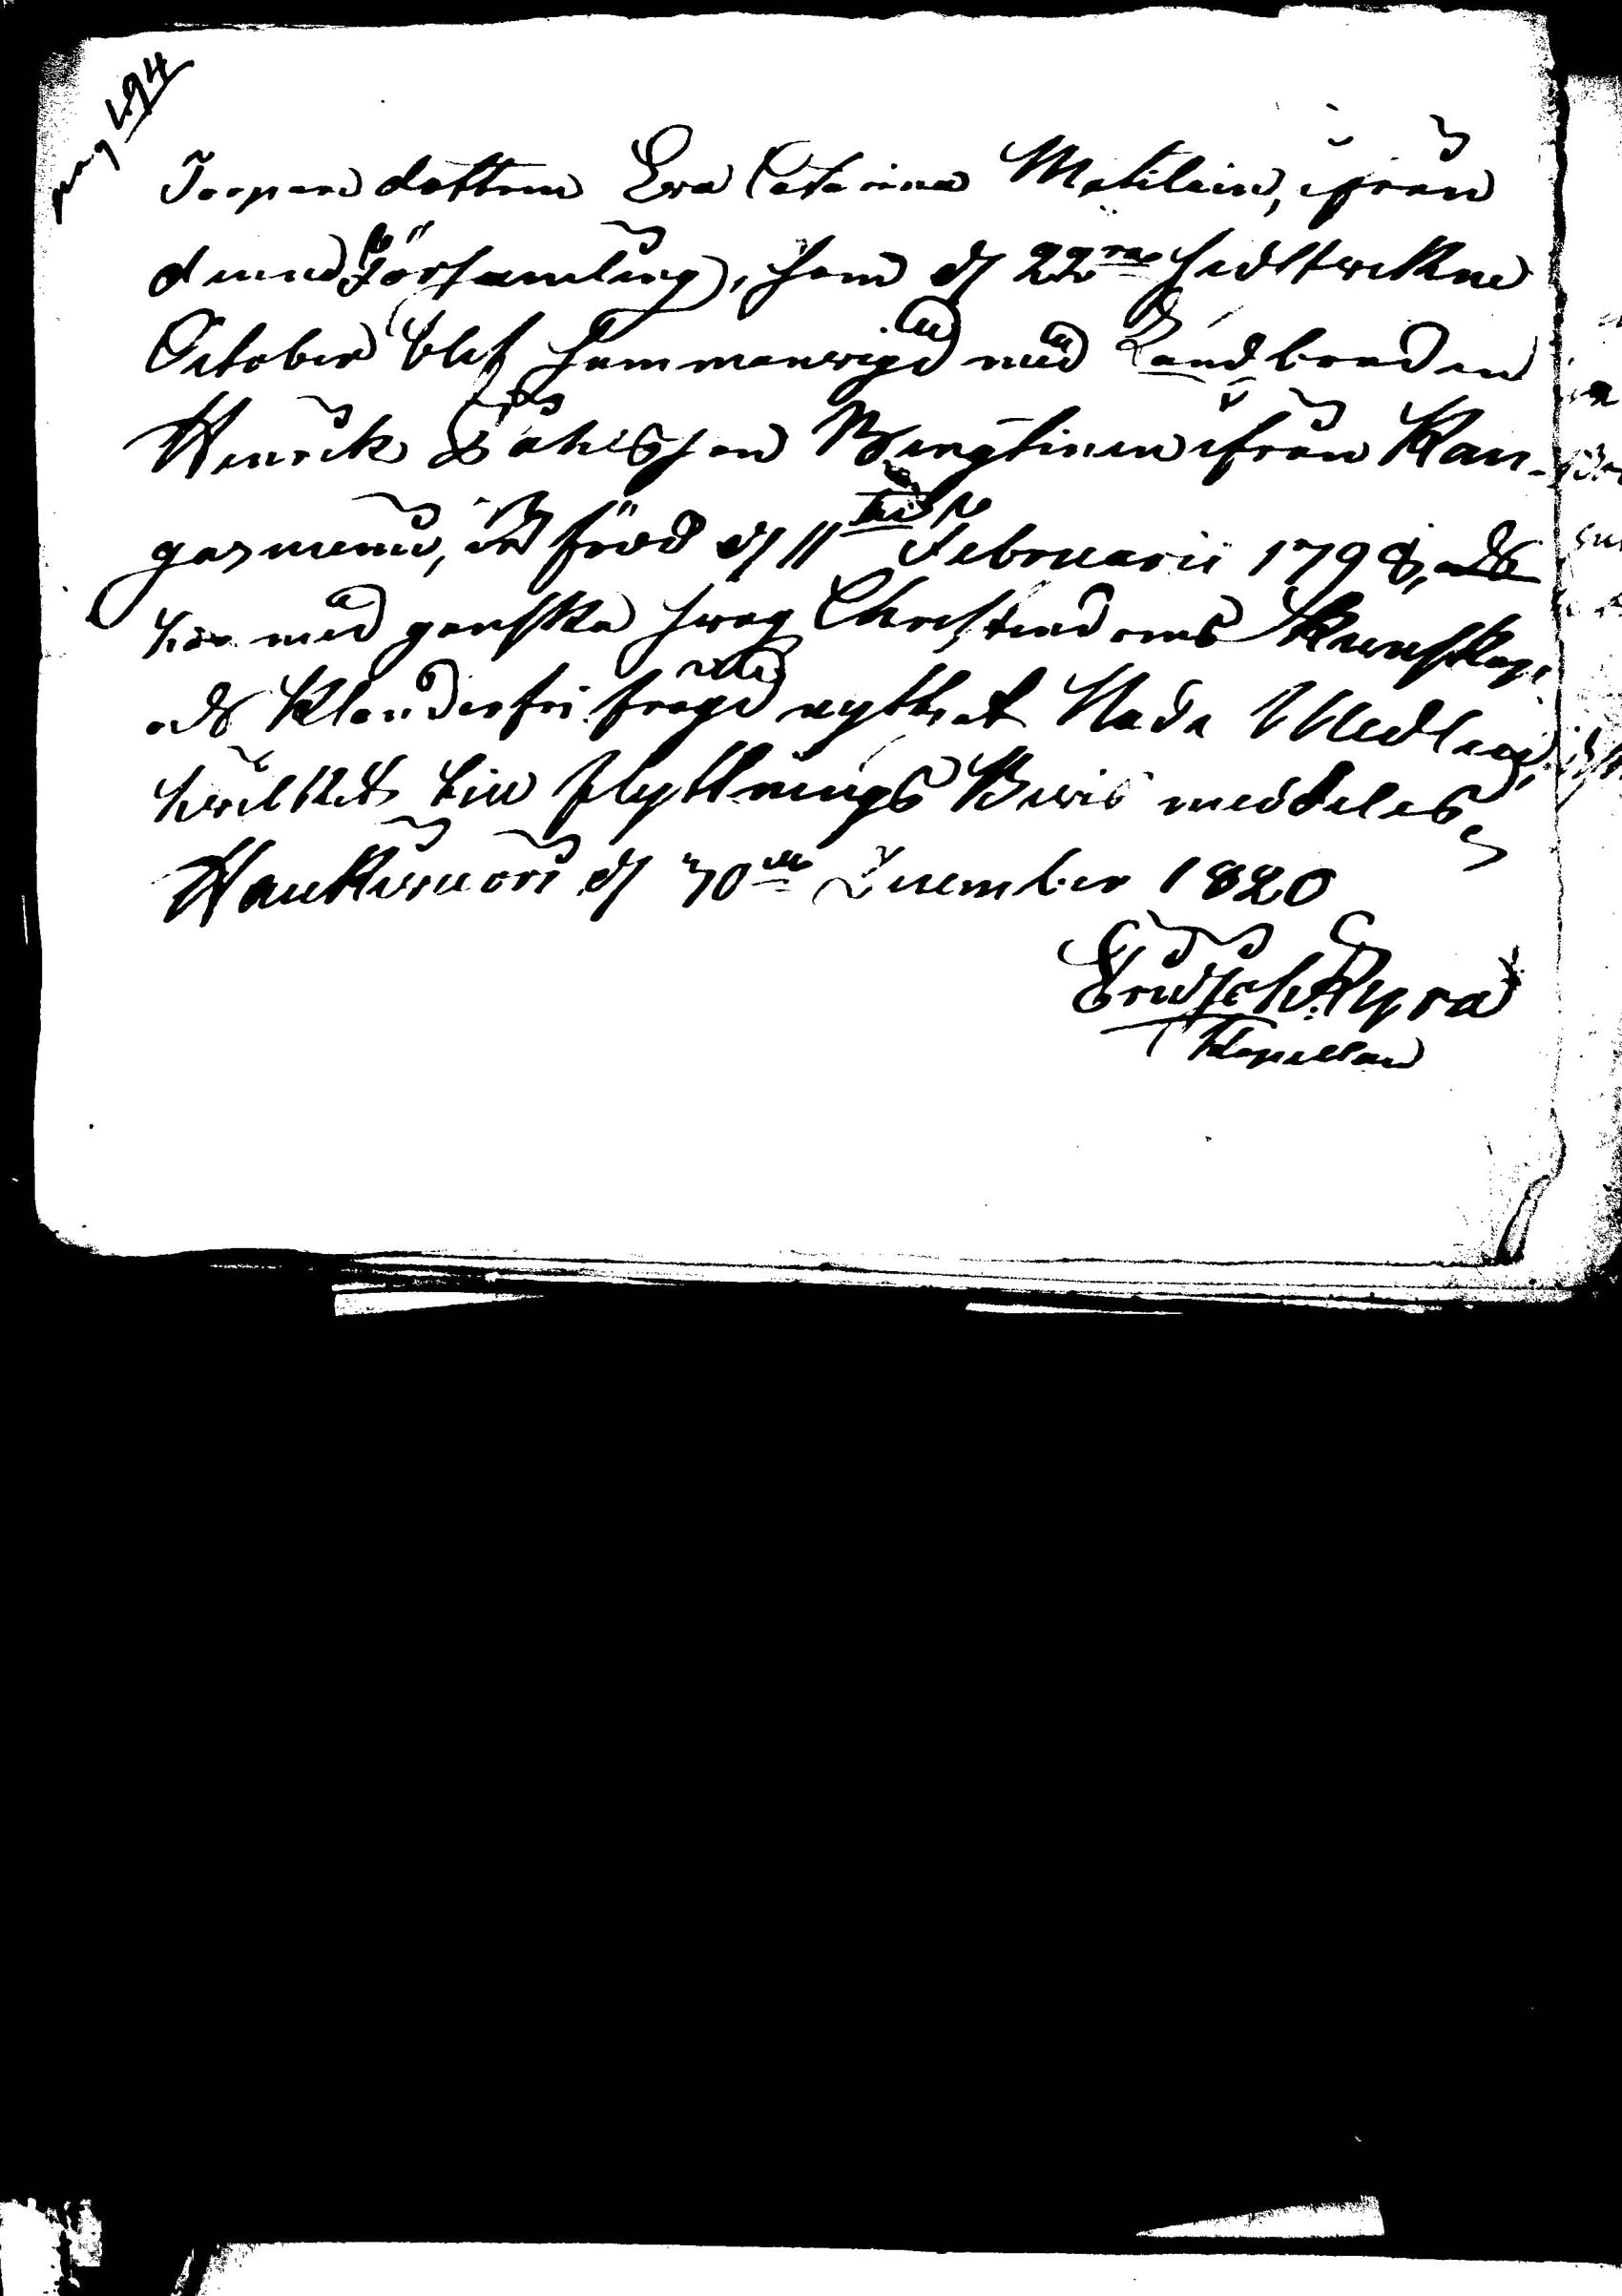 pag 494
Torpare dottren Eva Catarina Matilain, ifrån
denne Församling, som d/ 22ra sidstwekne
October blef sammanvigd med Landbonden
Henrik Påhlsson Berglinen ifrån Kan-
gasniemi, är född d/ 11te Februarii 1798,
här med ganska swag Christendoms Kunskap,
och Klanderfri frägd nyttjat Nada Medlen,
hwilket till flyttnings Bevis meddeles,
Haukivuori d/ 30de December 1820
Kyra
Kapellan